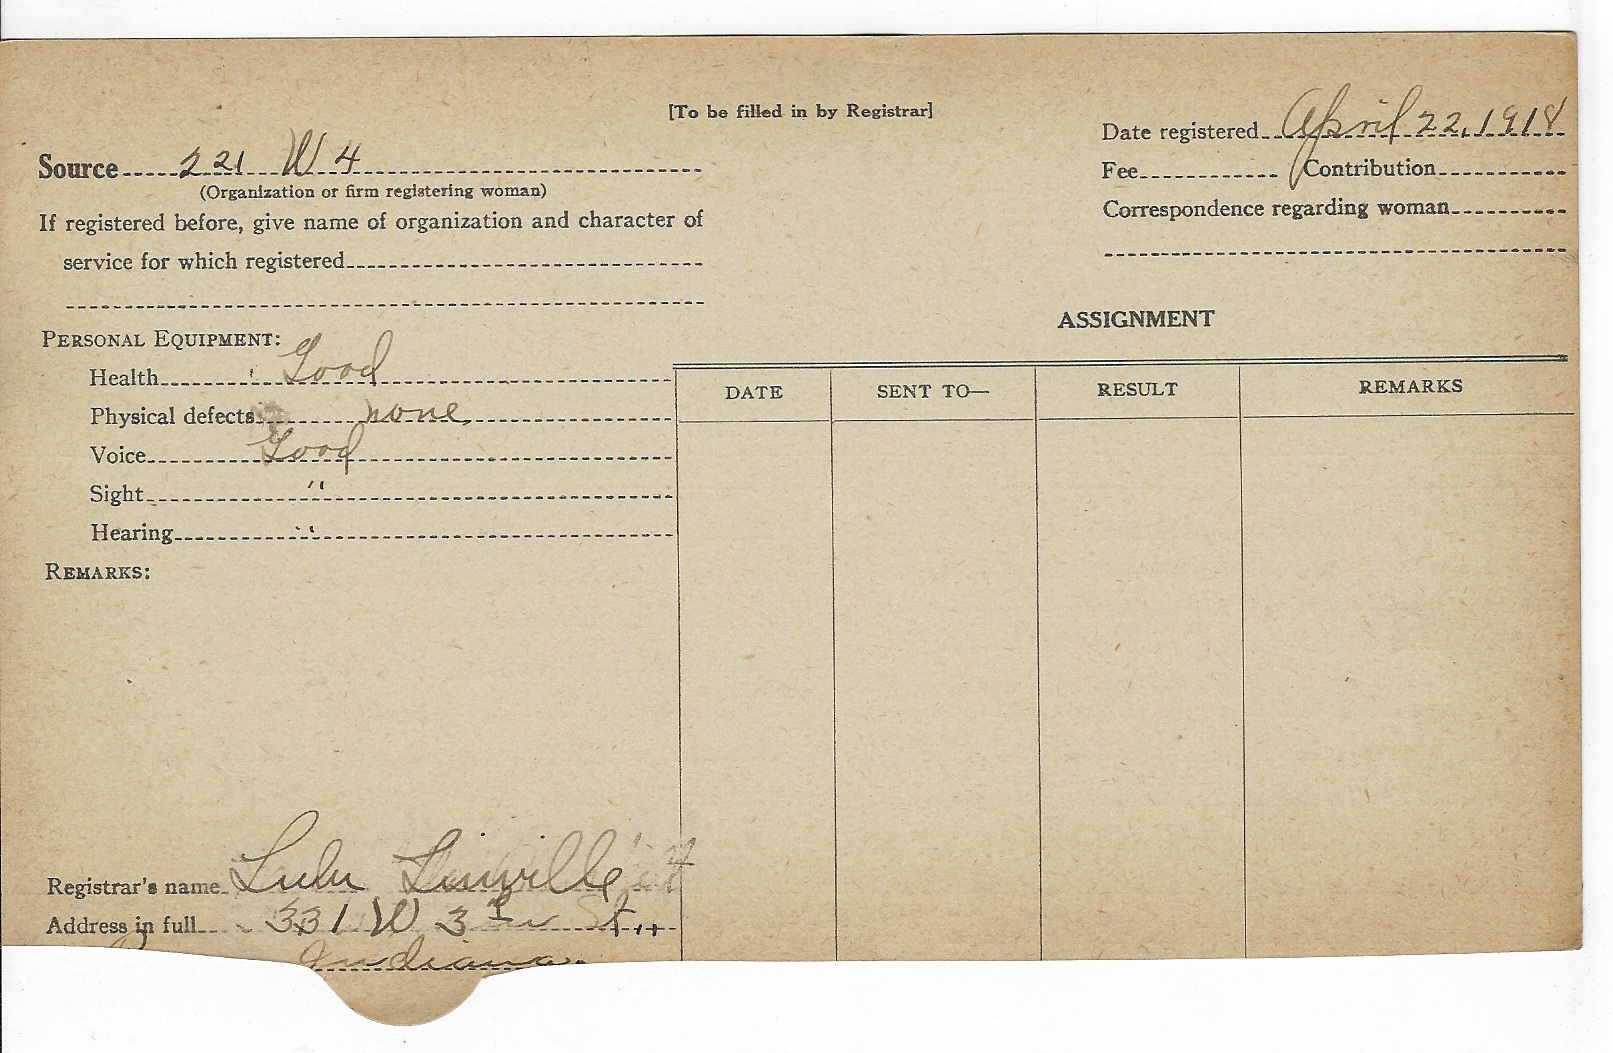 [To be filled in by Registrar]
Date registered April 22, 1918
Source 221 W 4
(Organization or firm registering woman)
Fee Contribution
If registered before, give name of organization and character of
Correspondence regarding woman
service for which registered
ASSIGNMENT
PERSONAL EQUIPMENT:
Health Good
Physical defects none
Voice Good
Sight "
Hearing "
REMARKS:
DATE SENT TO— RESULT REMARKS
Registrar's name Lulu Linville
Address in full 331 W 3 St.,
Indiana.